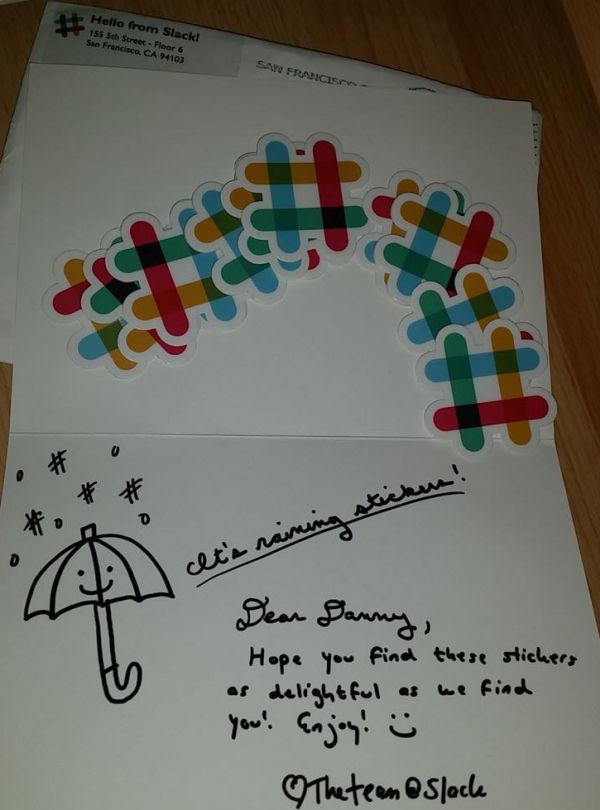 Hello from Slack!
155 5th Street - Floor 6
San Francisco, CA 94103
SAN FRANCISCO
It's raining stickers!
Dear Danny,
Hope you find these stickers
as delightful as we find
you! Enjoy! :)
♡The team @ Slack